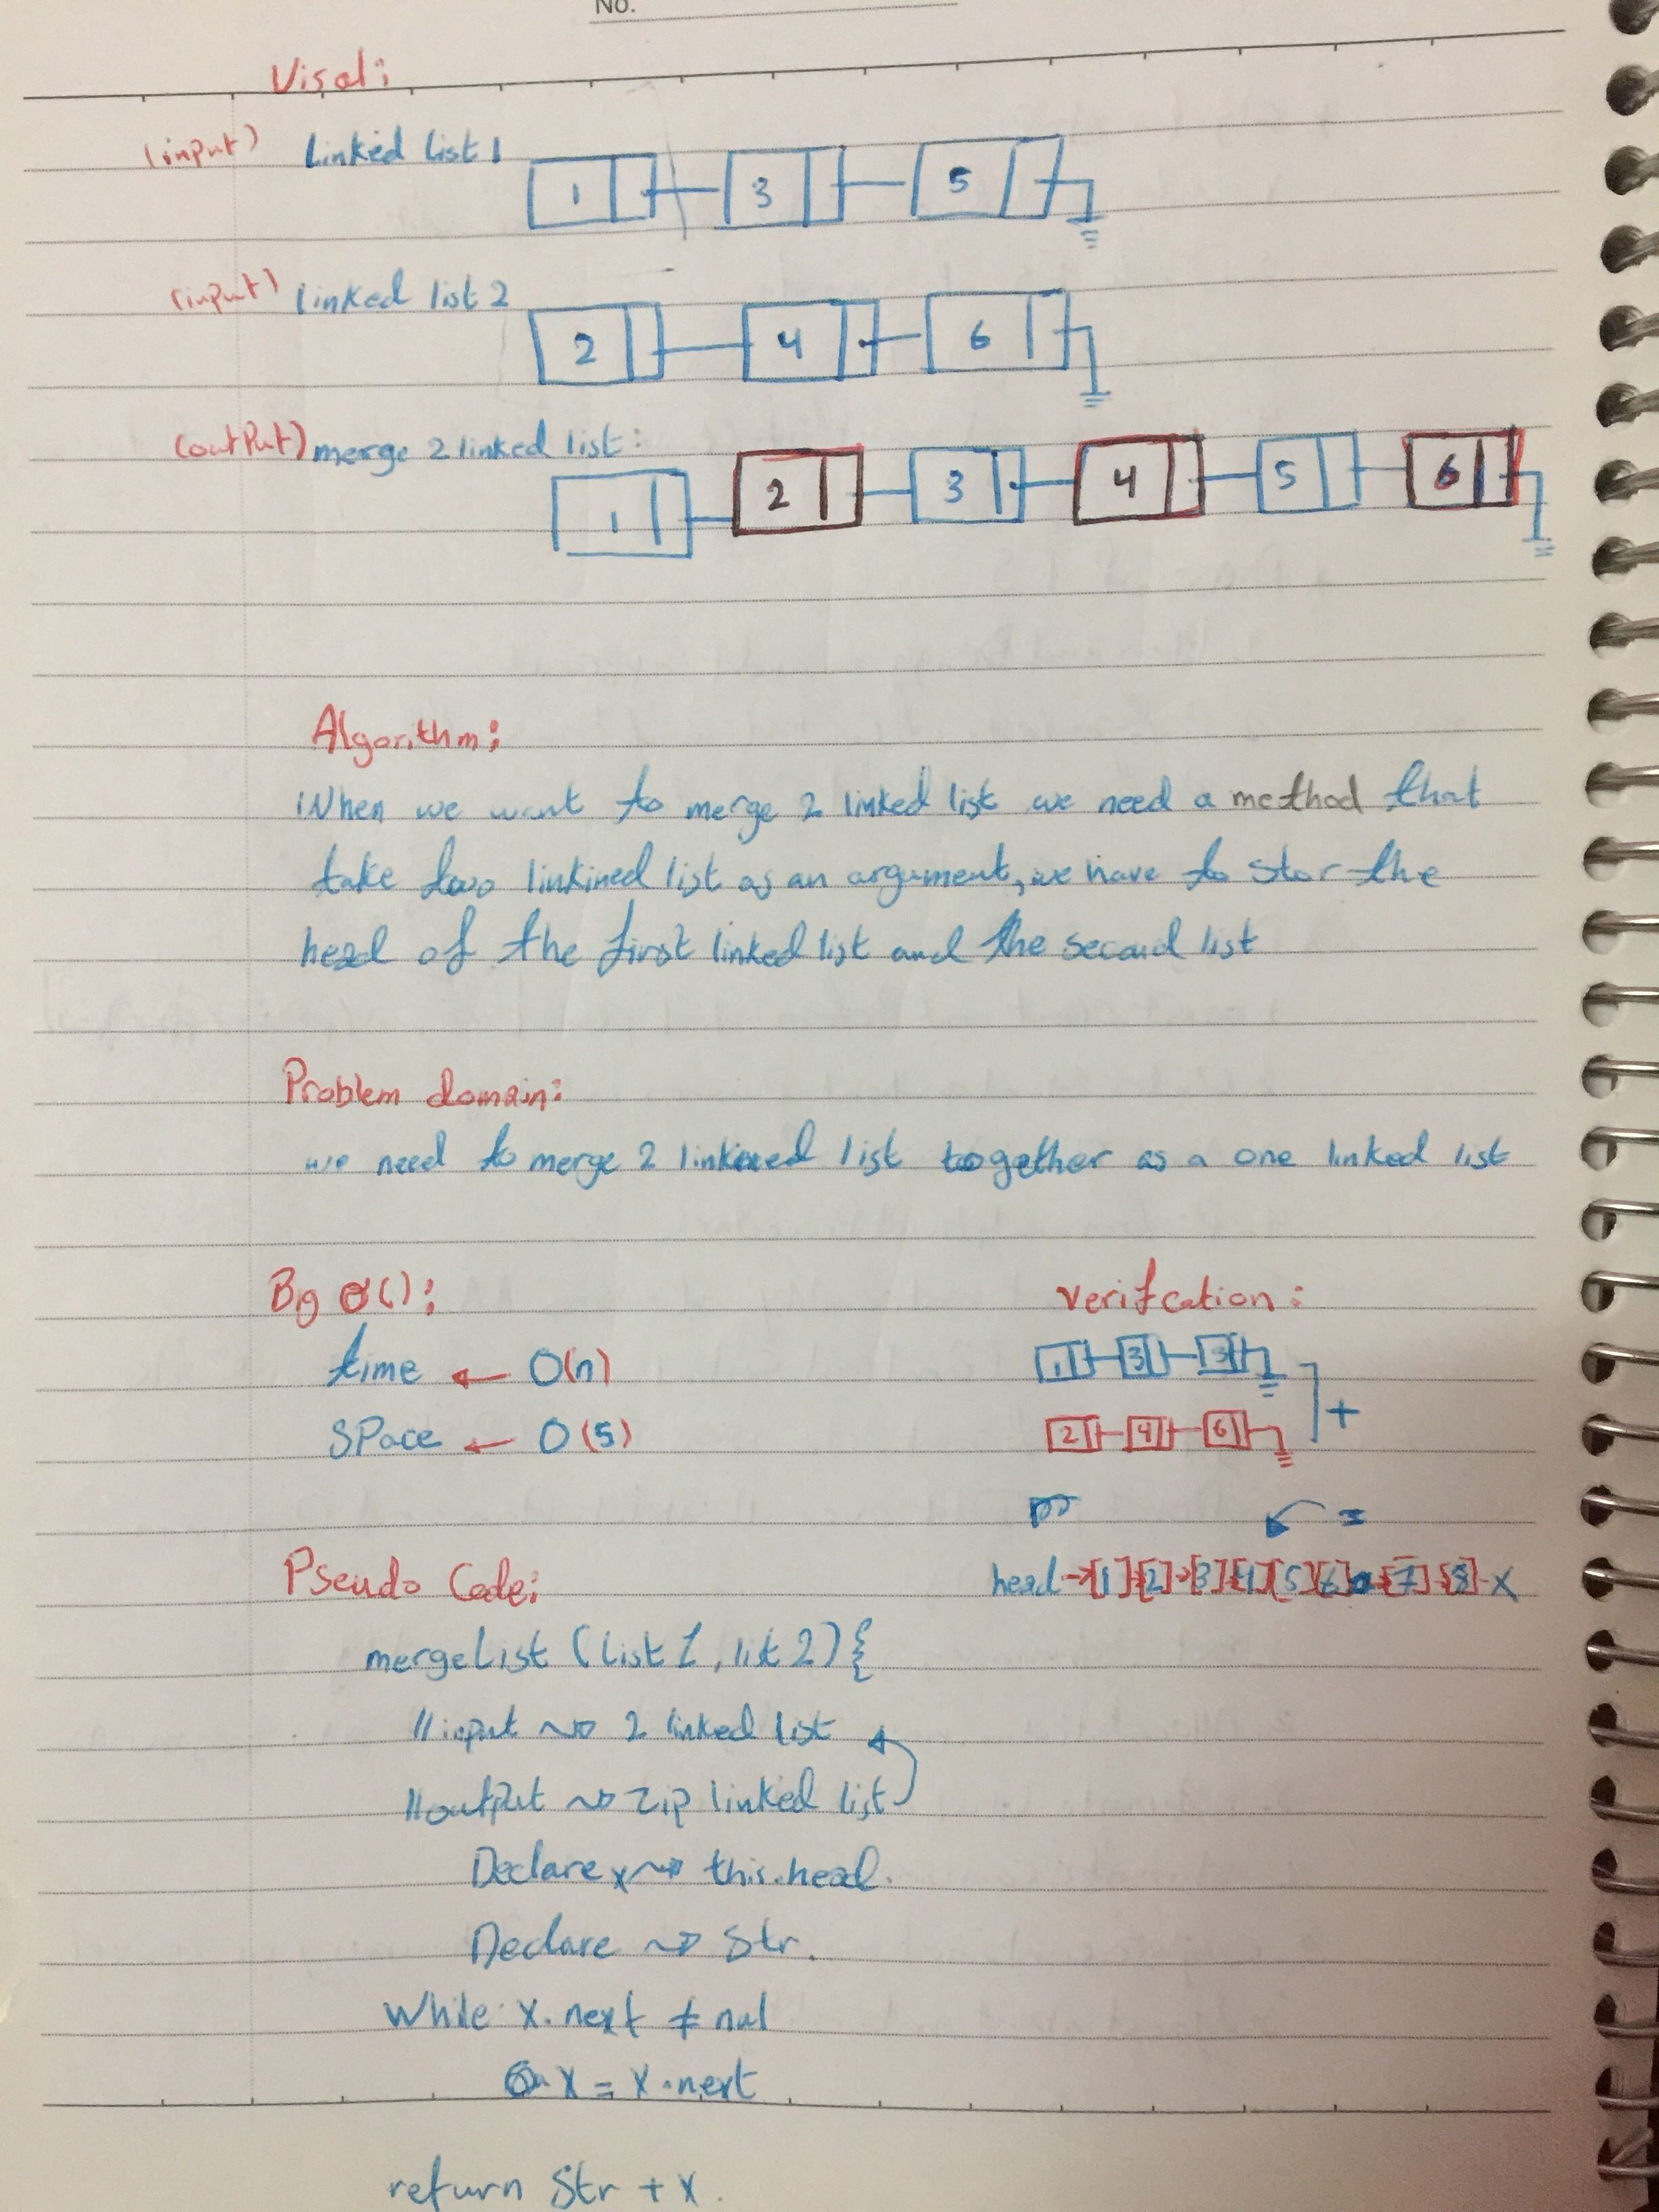 No.
Visal:
(input) linked list 1
1 3 5
(input) linked list 2
2 4 6
(output) merge 2 linked list:
1 2 3 4 5 6
Algorithm:
When we want to merge 2 linked list we need a method that
take two linkined list as an argument, we have to stor the
head of the first linked list and the second list
Problem domain:
we need to merge 2 linkined list together as a one linked list
Big O():
time ← O(n)
SPace ← O(5)
verifcation:
1 3 5
2 4 6
+
=
head → [1] [2] → [3] [4] [5] [6] → [7] [8] - X
Pseudo Code:
mergeList (list 1, list 2) {
// input ~> 2 linked list
// output ~> zip linked list
Declare x ~> this.head.
Declare ~> Str.
While x.next ≠ nul
x = x.next
return Str + x.